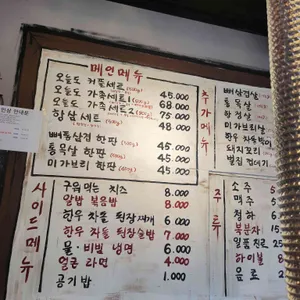 메인메뉴
오늘도 커플세트 45.000
오늘도 가족세트1 68.000
오늘도 가족세트2 75.000
항삼세트 48.000
뼈등심 한판 45.000
통목살 한판 45.000
미가브리 한판 45.000
사이드메뉴
구워먹는 치즈 8.000
알밥 볶음밥 8.000
한우 차돌 된장찌개 6.000
한우 차돌 된장술밥 7.000
물·비빔 냉면 6.000
얼큰 라면 4.000
공기밥 1.000
추가메뉴
통목살
항정살
미가브리살
한우 차돌박이
돼지꼬리
벌집 껍데기
주류
소주
맥주
청하
복분자
일품진로
하이볼
음료